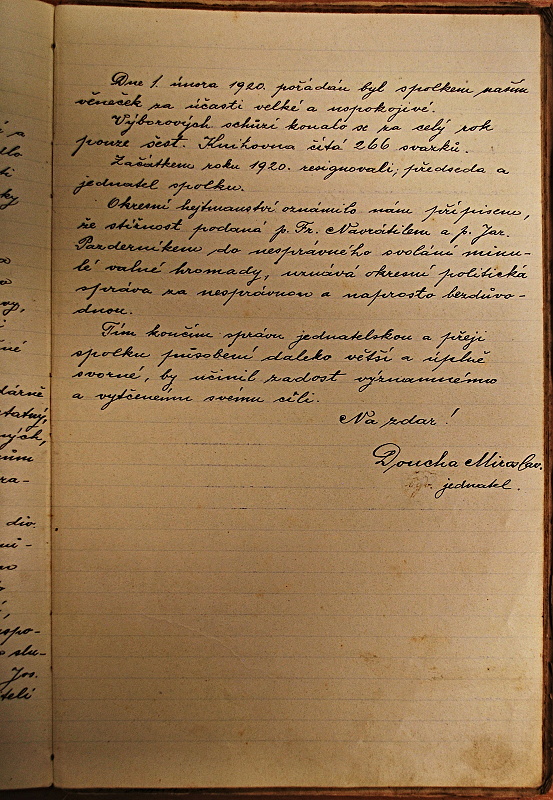 Dne 1. února 1920. pořádán byl spolkem naším
věneček za účasti velké a uspokojivé.
Výborových schůzí konalo se za celý rok
pouze šest. Knihovna čítá 266 svazků.
Začátkem roku 1920. resignovali, předseda a
jednatel spolku.
Okresní hejtmanství oznámilo nám přípisem,
že stížnost podaná p. Fr. Navrátilem a p. Jar.
Pazderníkem do nesprávného svolání minu-
lé valné hromady, uznává okresní politická
správa za nesprávnou a naprosto bezdůvo-
dnou.
Tím končím správu jednatelskou a přeji
spolku působení daleko větší a úplně
svorné, by učinil zadost významnému
a vytčenému svému cíli.
Na zdar!
Doucha Miroslav.
jednatel.
dlo
ti
ky
vy,
né
dárně
tatný,
ných,
ním
ra-
div.
ní-
uspo-
slu-
Jos.
iteli